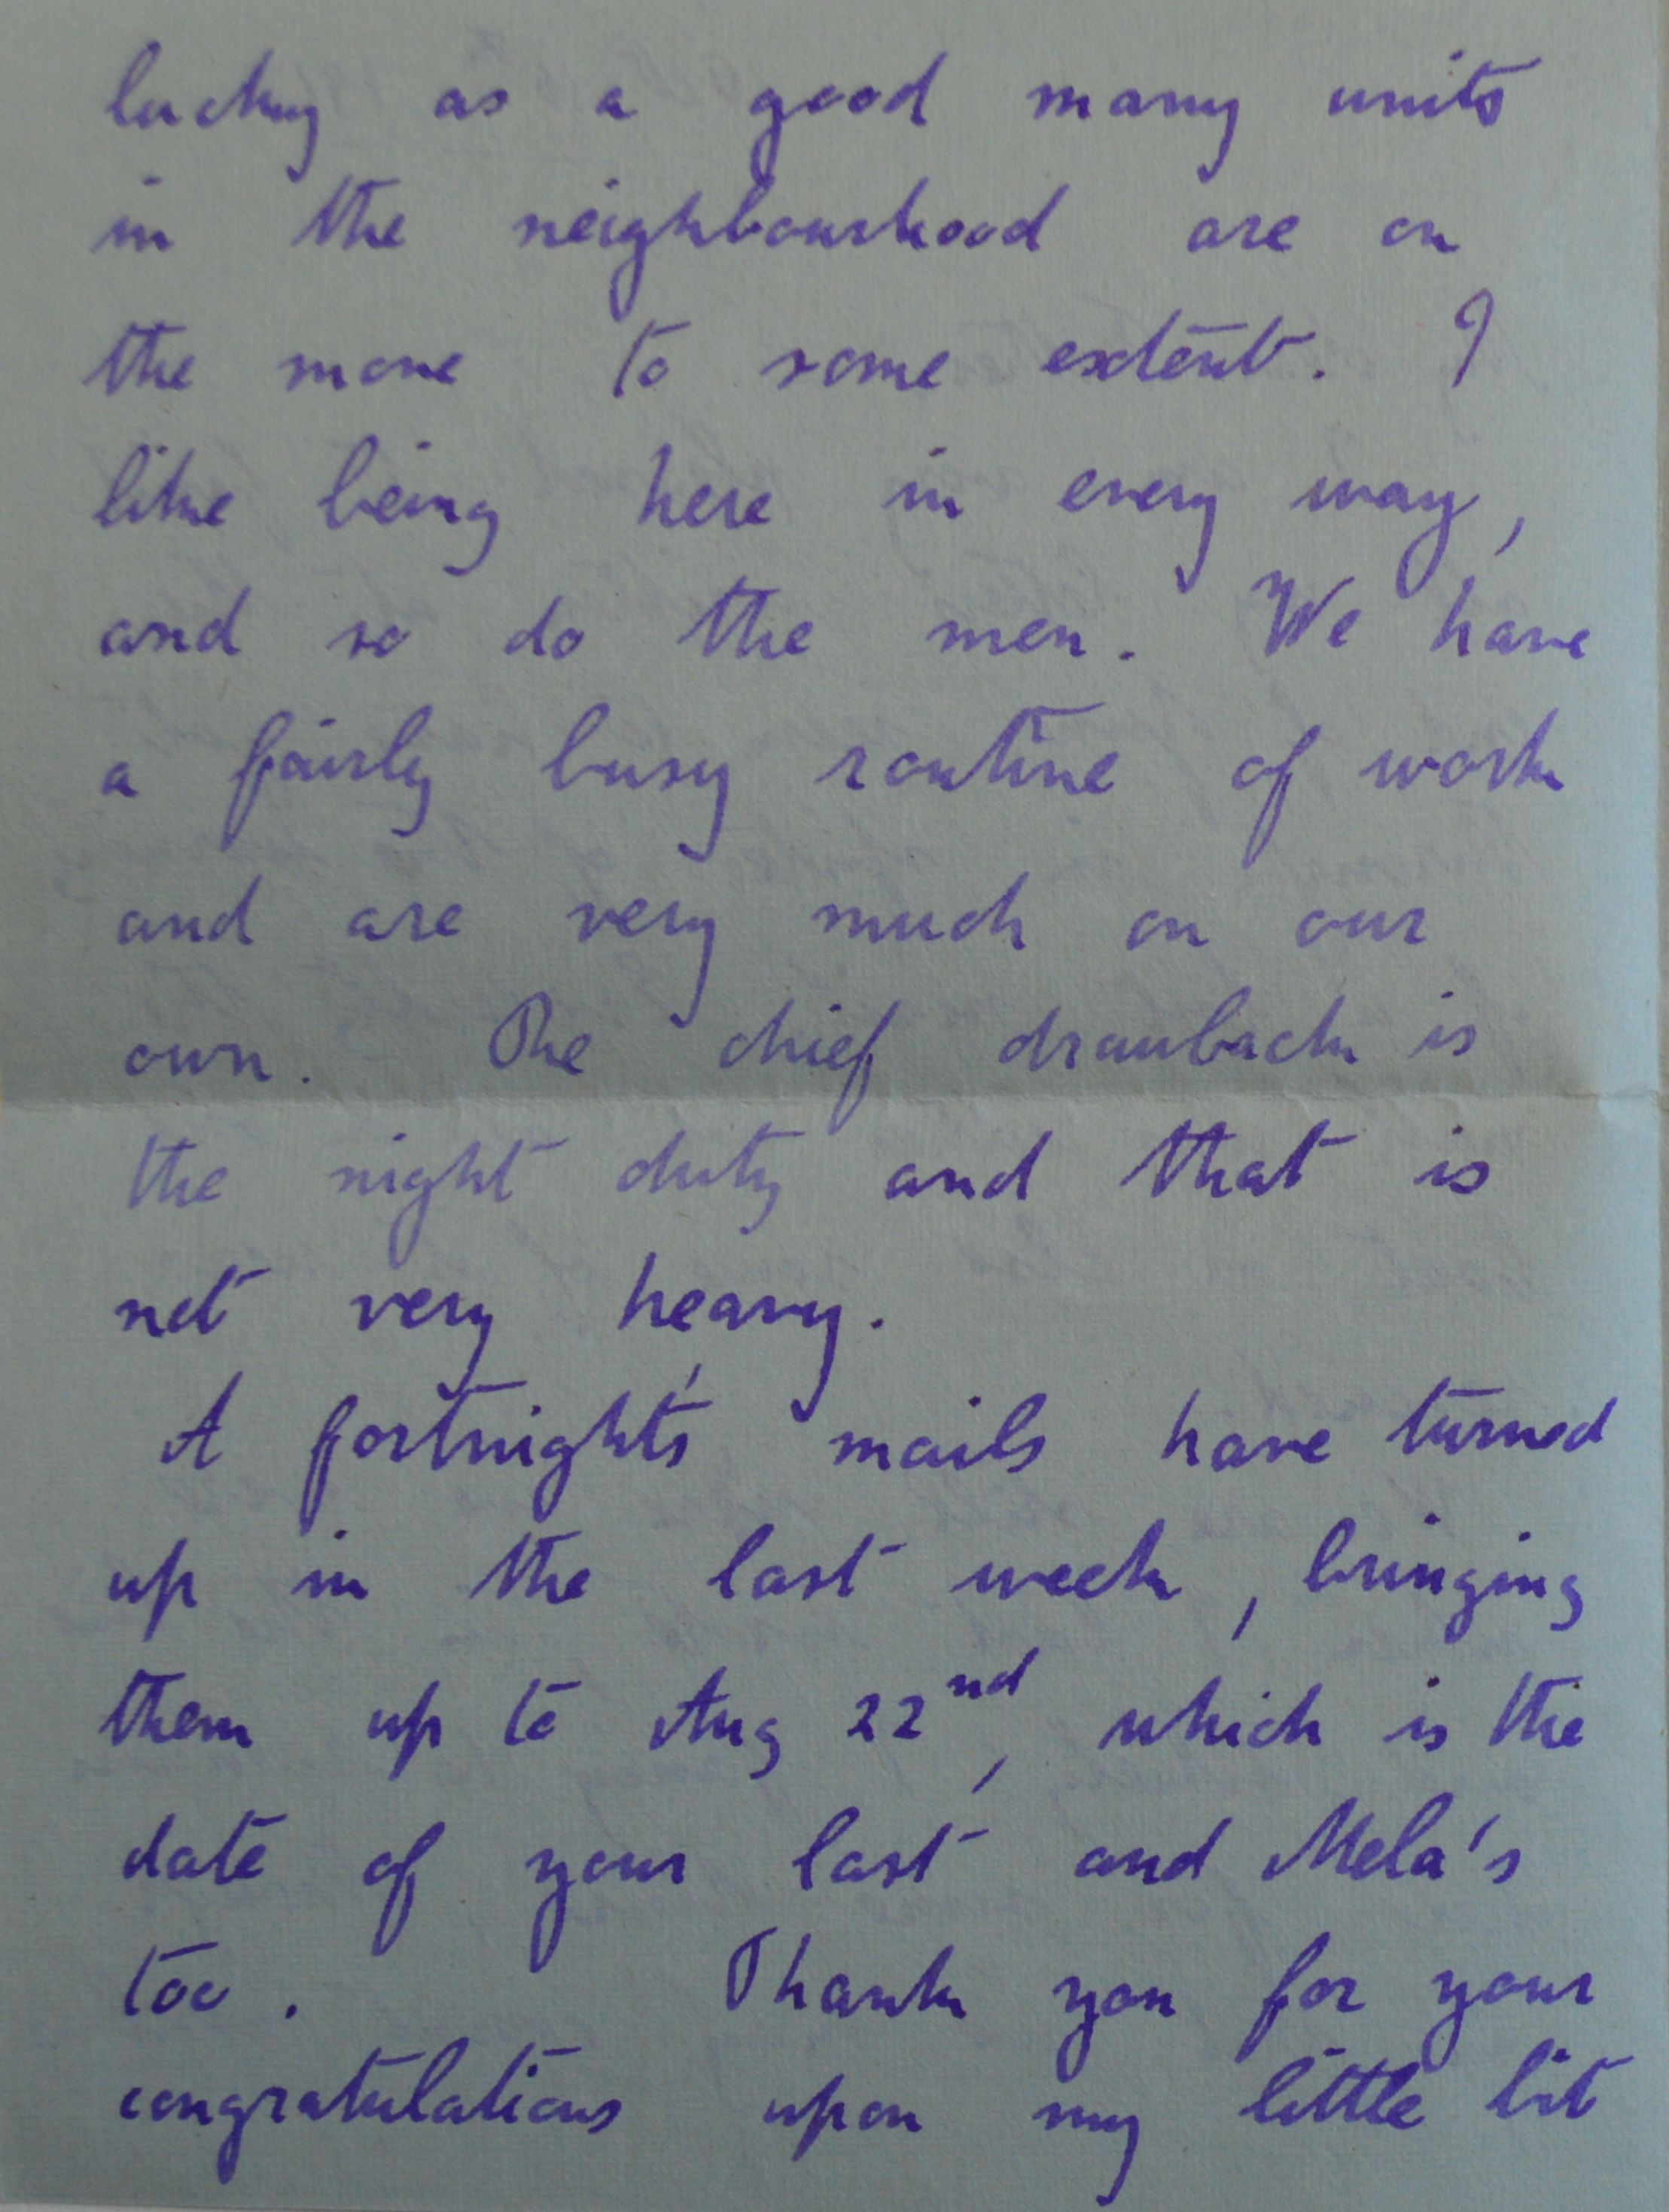 lucky as a good many units
in the neighbourhood are on
the move to some extent. I
like being here in every way,
and so do the men. We have
a fairly busy routine of work
and are very much on our
own. The chief drawback is
the night duty and that is
not very heavy.
A fortnight's mails have turned
up in the last week, bringing
them up to Aug 22nd, which is the
date of your last and Mela's
too. Thank you for your
congratulations upon my little bit